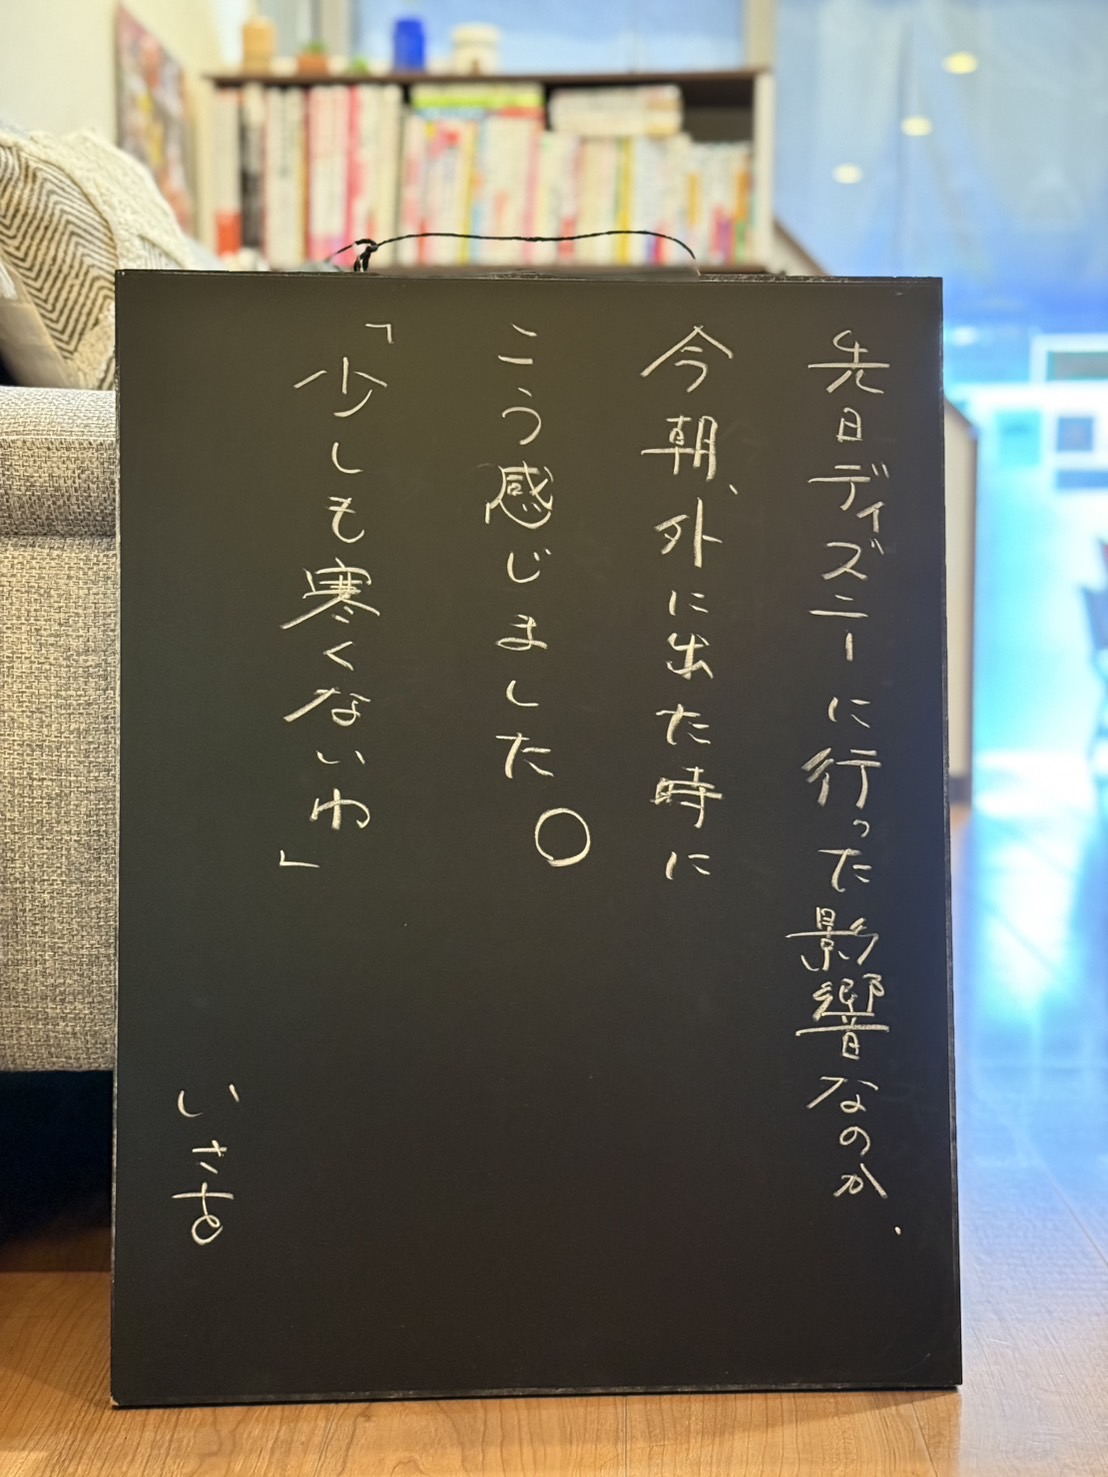 先日ディズニーに行った影響なのか、
今朝、外に出た時に
こう感じました。
「少しも寒くないわ」
いさお